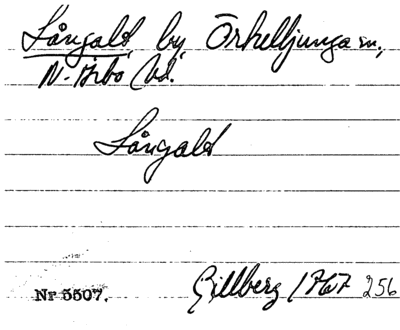 Långalt, by, Örkelljunga sn.,
N. Åsbo hd.
Långalt
Nr 5507. Gillberg 1767 256